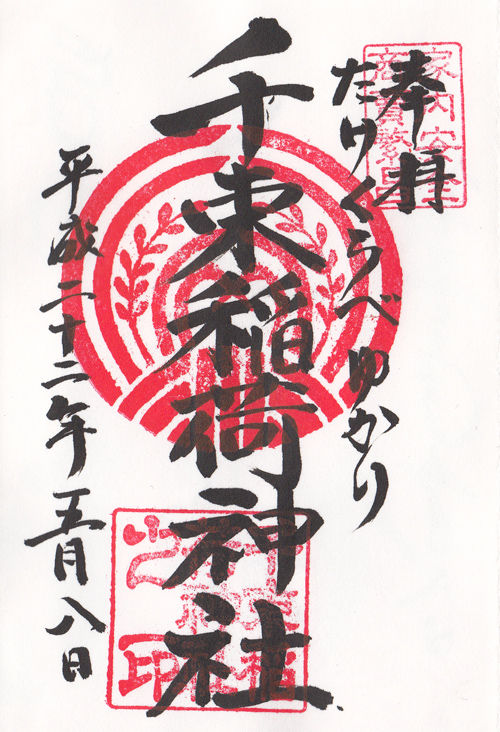 奉拝
たけくらべゆかり
千束稲荷神社
平成二十二年五月八日
家内安全
商売繁昌